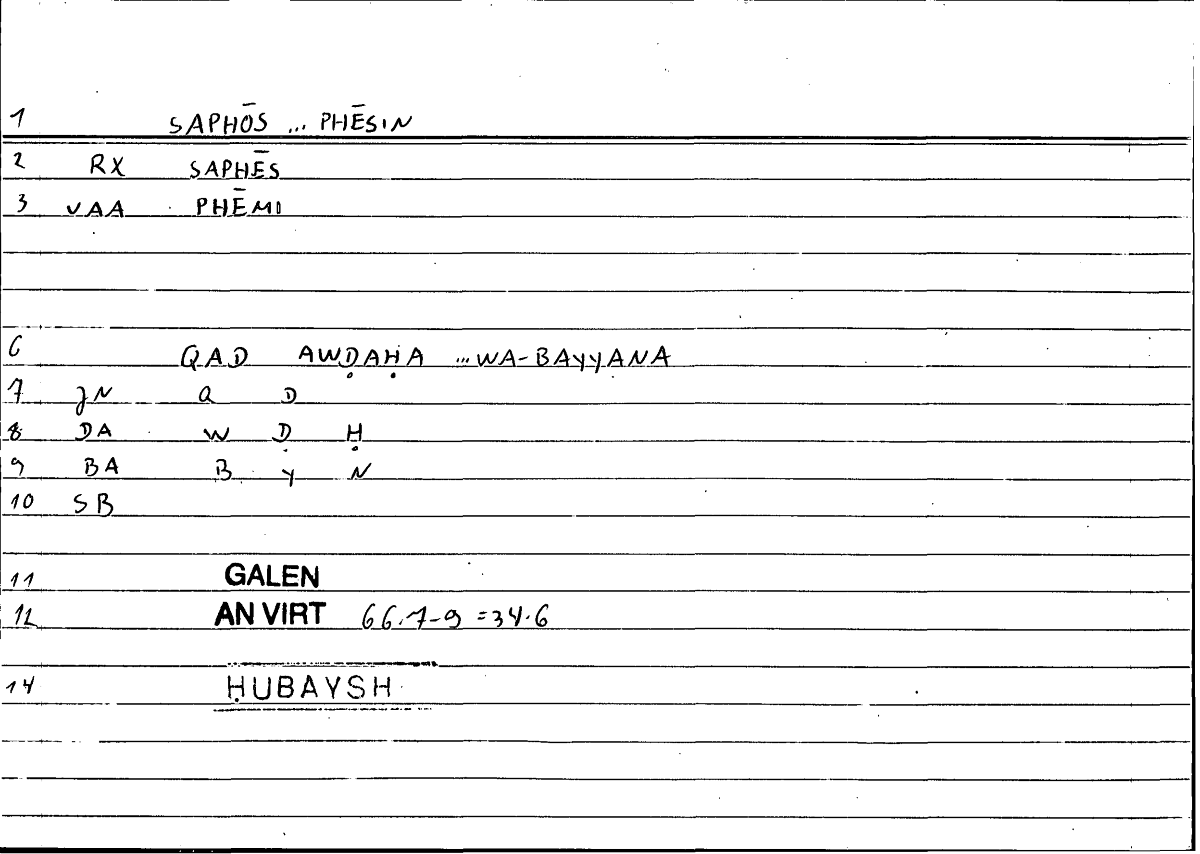 1 SAPHŌS ... PHĒSIN
2 RX SAPHĒS
3 VAA PHĒMI
6 QAD AWḌAḤA ... WA-BAYYANA
7 JN Q D
8 DA W Ḍ Ḥ
9 BA B Y N
10 SB
11 GALEN
12 AN VIRT 66.7-9 = 34.6
14 ḤUBAYSH